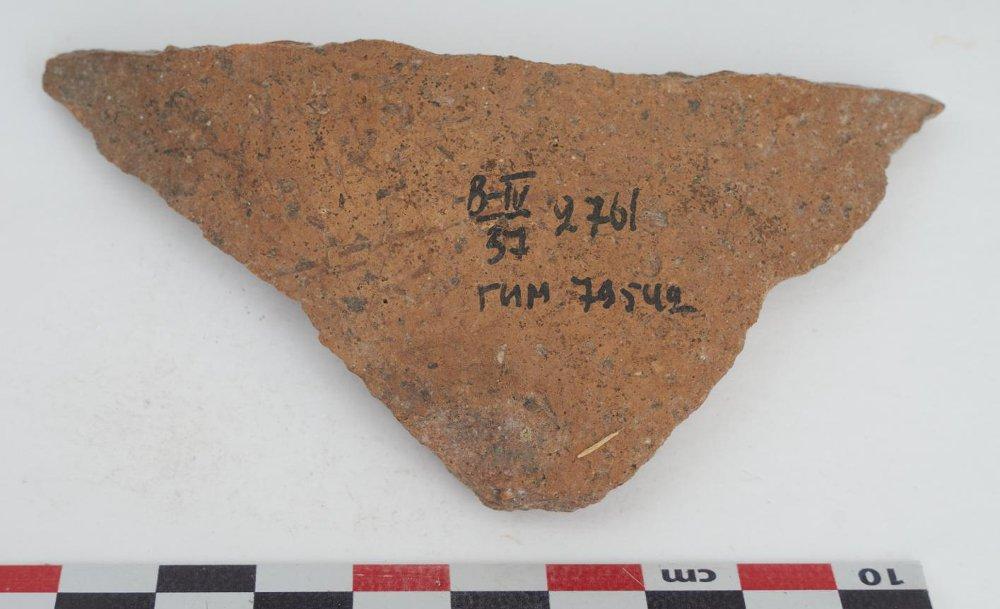 В-IV
37 2761
ГИМ 79542
cm 10